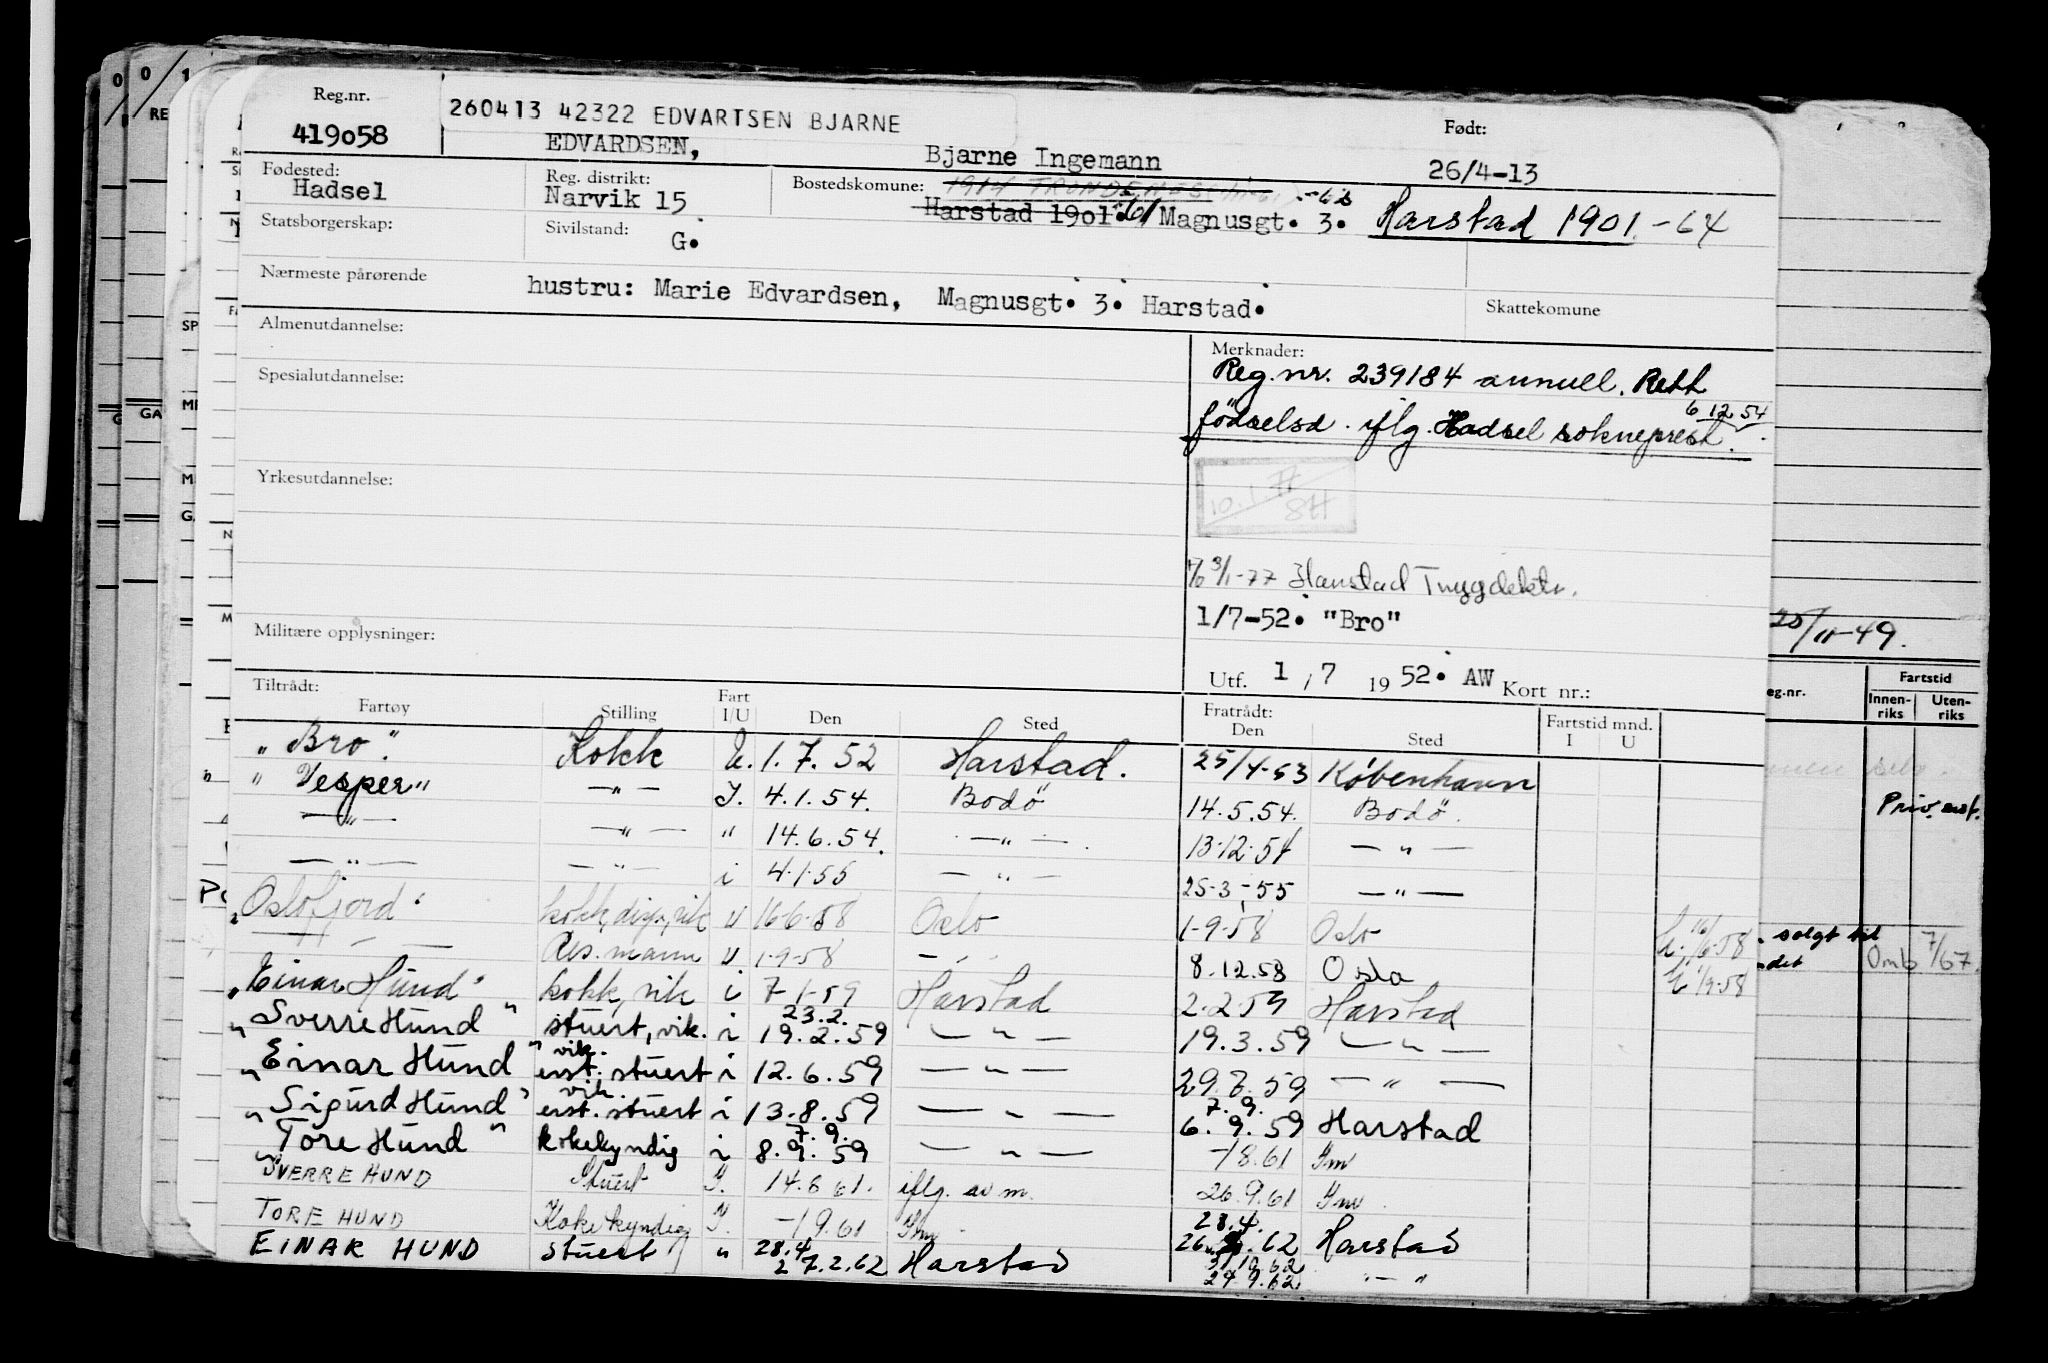 Reg.nr.
419o58
260413 42322 EDVARTSEN BJARNE
EDVARDSEN, Bjarne Ingemann
Født:
26/4-13
Fødested:
Hadsel
Reg. distrikt:
Narvik 15
Bostedskomune: 1914 TRONDENES -62
Harstad 19o1 -61 Magnusgt. 3. Harstad 1901.-64
Statsborgerskap:
Sivilstand: G.
Nærmeste pårørende
hustru: Marie Edvardsen, Magnusgt. 3. Harstad.
Skattekomune
Almenutdannelse:
Spesialutdannelse:
Yrkesutdannelse:
Militære opplysninger:
Merknader:
Reg.nr. 239184 annull. Rett
fødselsd. iflg. Hadsel sokneprest 6 12 54
10.1
3/1-77 Harstad Trygdektr.
1/7-52. "Bro"
Utf. 1 , 7 19 52. AW Kort nr.:
Tiltrådt: Fratrådt:
Fartøy Stilling Fart I/U Den Sted Den Sted Fartstid mnd. I U
"Bro" Kokk U. 1.7.52 Harstad. 25/4-53 København
"Vesper" —"— I. 4.1.54. Bodö 14.5.54. Bodö.
—"— —"— " 14.6.54. —"— 13.12.54 —"—
—"— —"— i 4.1.55 —"— 25-3-55 —"—
"Oslofjord" kokk, disp, vik u 16-6-58 Oslo 1-9-58 Oslo 16/6-58
—"— Res. mann u 1-9-58 —"— 8.12.58 Oslo 1/9-58
"Einar Hund" kokk, vik i 7 1-59 Harstad 2.2.59 Harstad
"Sverre Hund" stuert, vik. i 23.2. 19.2.59 —"— 19.3.59 —"—
"Einar Hund" vik. enst. stuert i 12.6.59 —"— 29.7.59 —"—
"Sigurd Hund" vik. enst. stuert i 13.8.59 —"— 7.9. 6.9.59 Harstad
"Tore Hund" kokekyndig i 7.9. 8.9.59 —"— -18.61
SVERRE HUND Stuert I. 14.8 61. iflg. av m. 26.9.61
TORE HUND Kokekyndig I. -19.61
EINAR HUND stuert " 28.4 27.2.62 Harstad 28.4. 62 Harstad
29.9.62 "—"
25/11-49.
eg.nr.
Fartstid
Innen-riks Uten-riks
Priv. ant.
solgt til
ndet
Omb 7/67.
0 0 1
RE
GA
SP